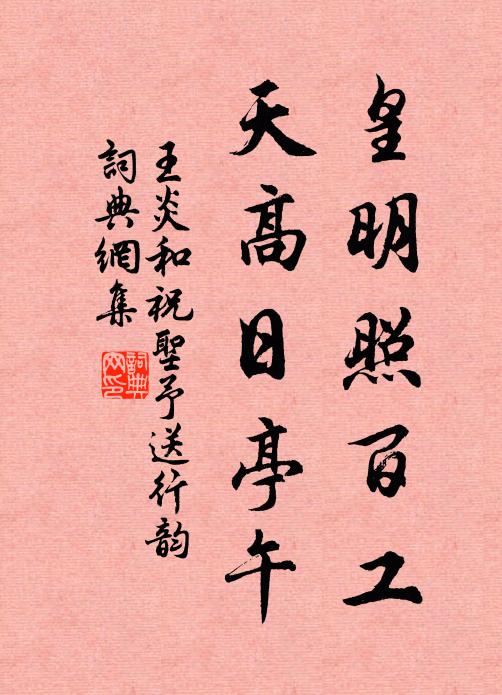 皇明照百工
天高日亭午
王炎和祝聖予送行韵
詞典網集
詞典网印